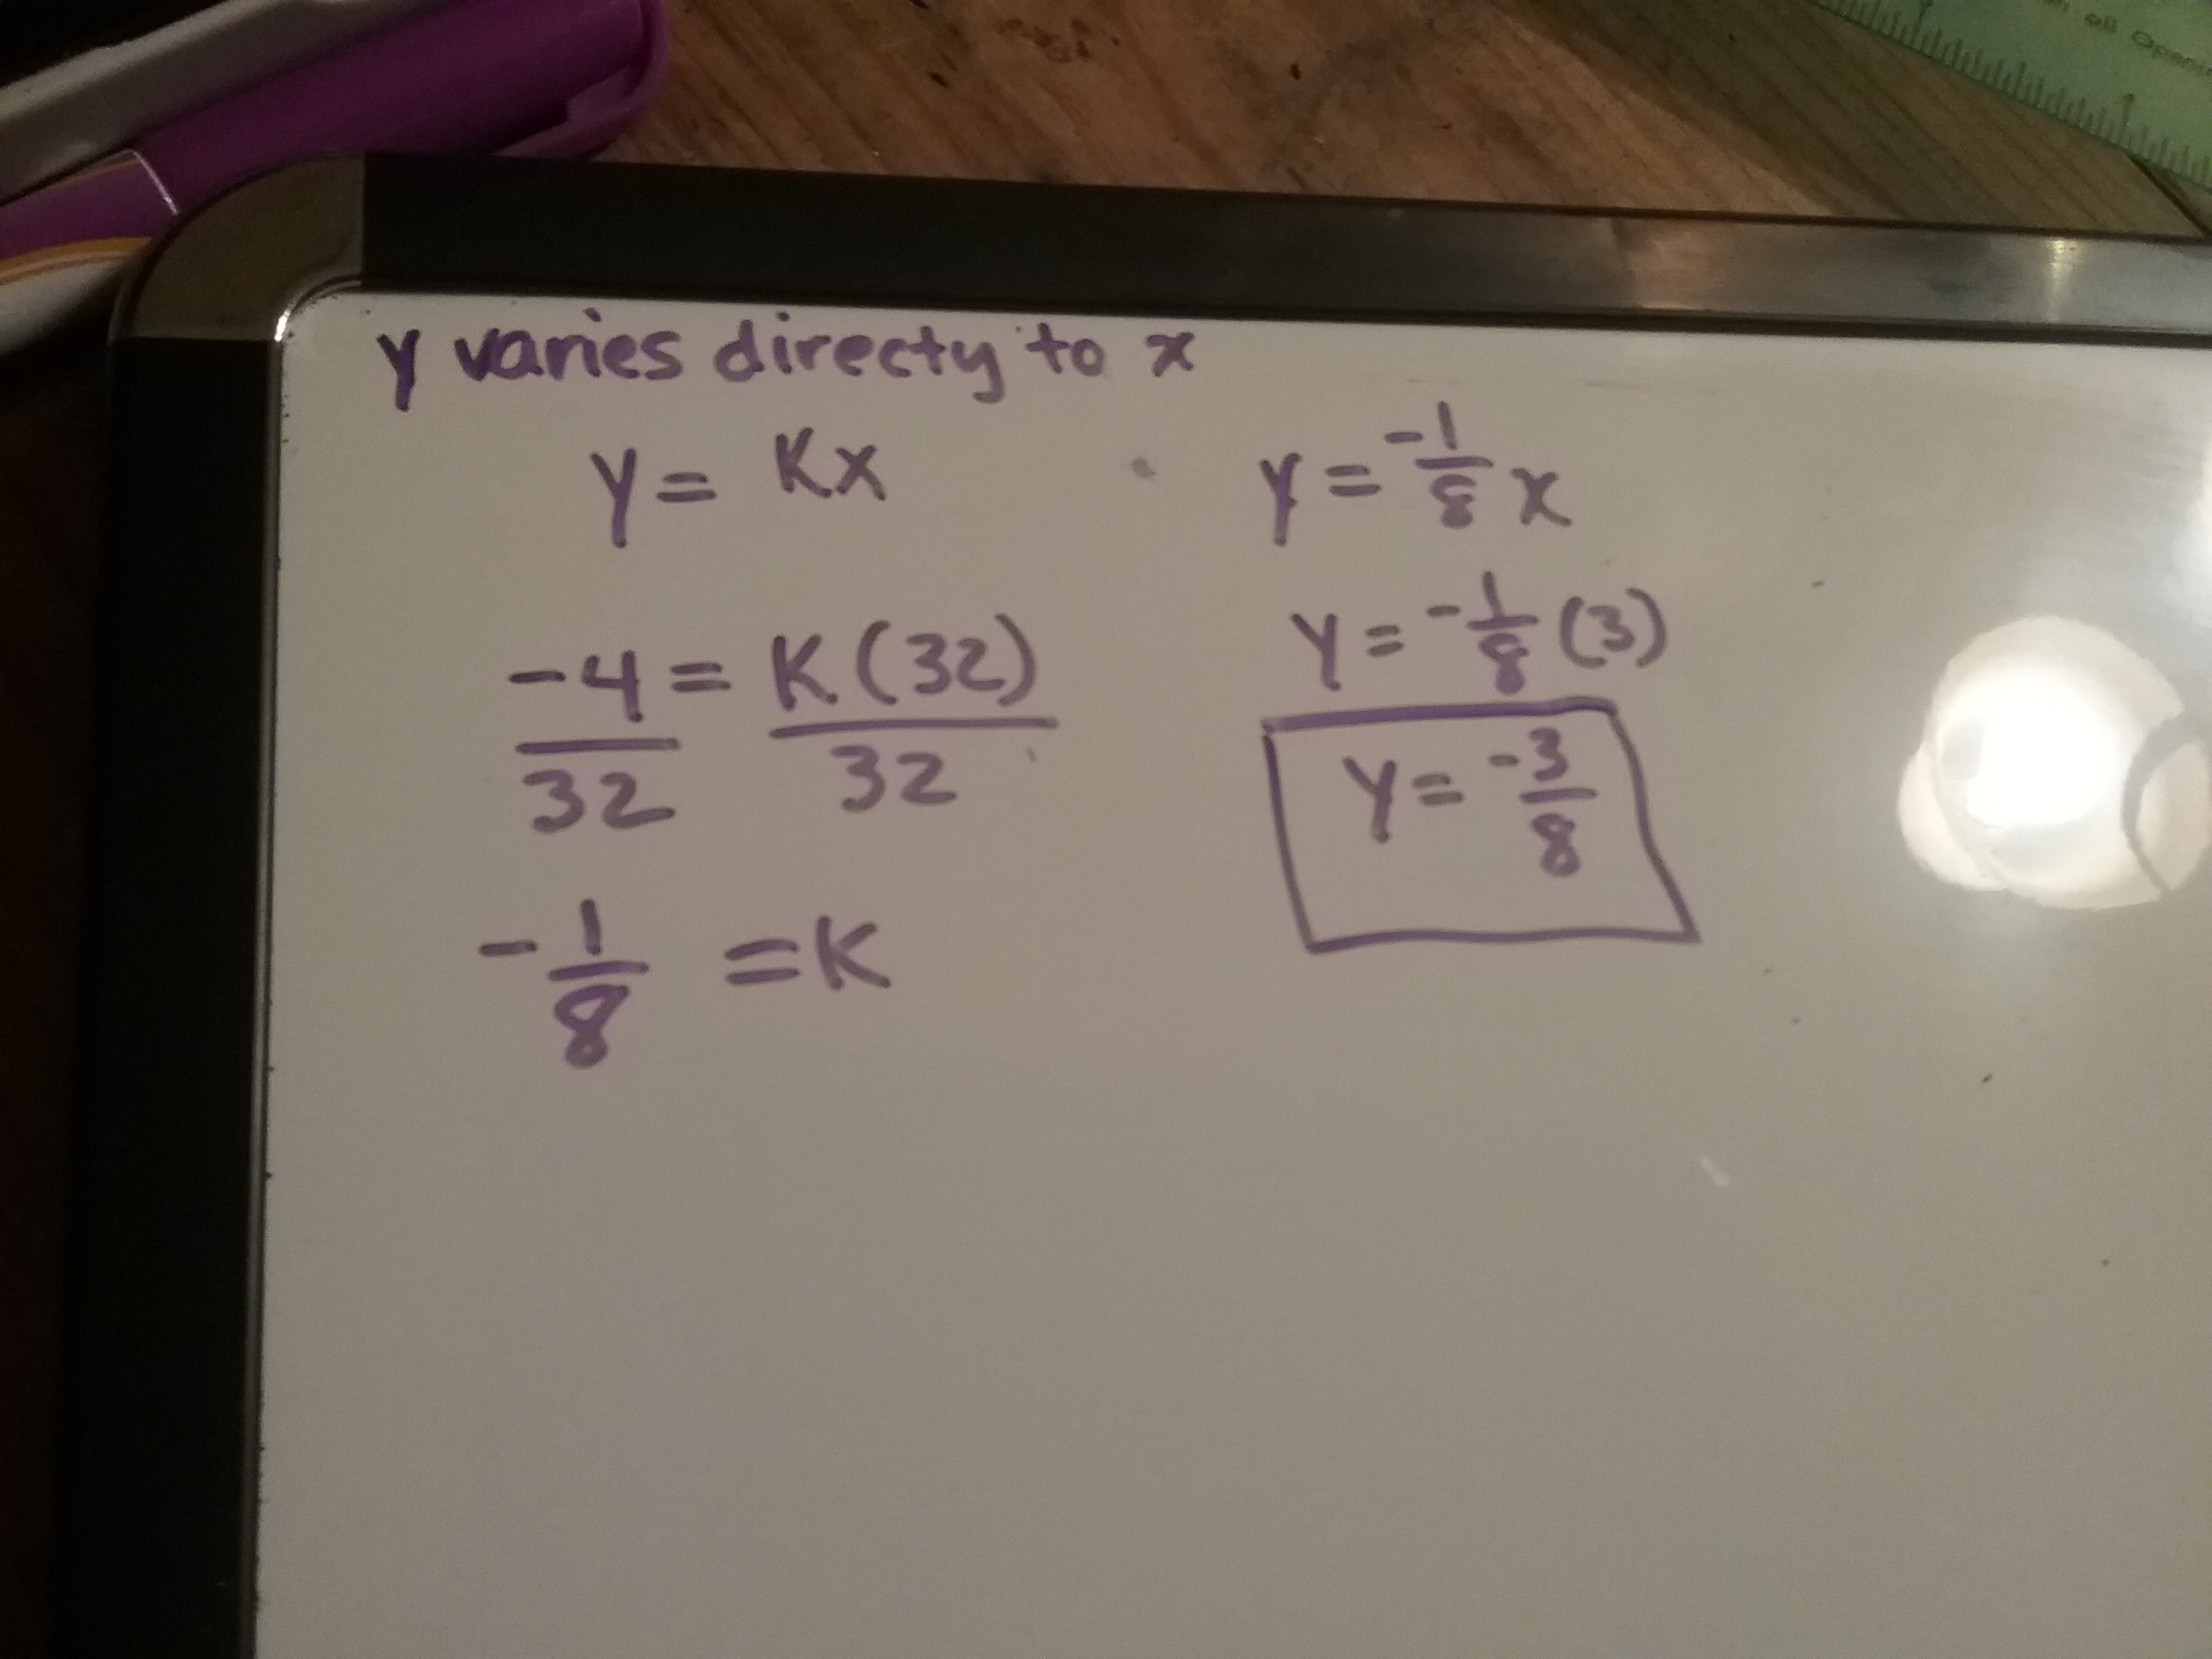 y varies directy to x
y = Kx
-4 = K(32)
32 32
-1/8 = K
y = -1/8 x
y = -1/8 (3)
y = -3/8
all